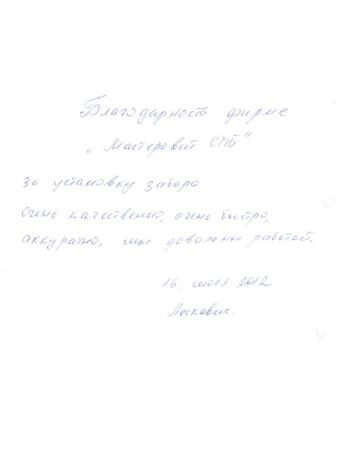 Благодарность фирме
„Мастеровит СПБ"
за установку забора.
Очень качественно, очень быстро,
аккуратно, мы довольны работой.
16. июля 2012
Лескович.